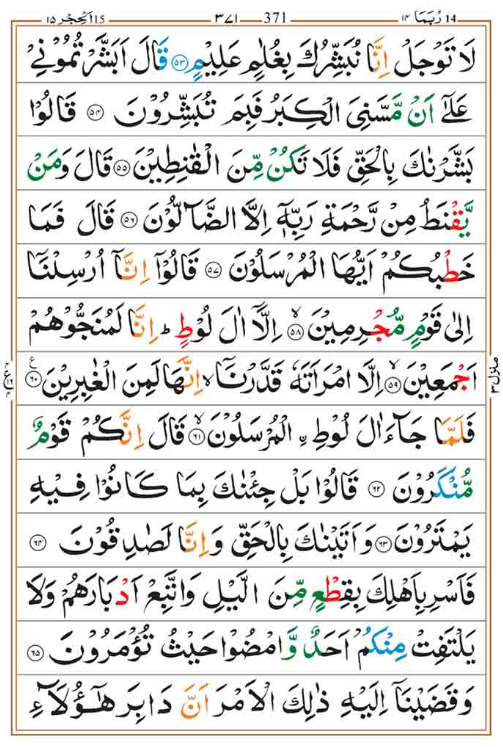 رُبَمَا ١٤ 14 371 ٣٧١ اَلْحِجْر ١٥ 15
لَا تَوْجَلْ اِنَّا نُبَشِّرُكَ بِغُلٰمٍ عَلِيْمٍ ﴿٥٣﴾ قَالَ اَبَشَّرْتُمُوْنِيْ
عَلٰٓى اَنْ مَّسَّنِيَ الْكِبَرُ فَبِمَ تُبَشِّرُوْنَ ﴿٥٤﴾ قَالُوْا
بَشَّرْنٰكَ بِالْحَقِّ فَلَا تَكُنْ مِّنَ الْقٰنِطِيْنَ ﴿٥٥﴾ قَالَ وَمَنْ
يَّقْنَطُ مِنْ رَّحْمَةِ رَبِّهٖٓ اِلَّا الضَّآلُّوْنَ ﴿٥٦﴾ قَالَ فَمَا
خَطْبُكُمْ اَيُّهَا الْمُرْسَلُوْنَ ﴿٥٧﴾ قَالُوْٓا اِنَّآ اُرْسِلْنَآ
اِلٰى قَوْمٍ مُّجْرِمِيْنَ ﴿٥٨﴾ اِلَّآ اٰلَ لُوْطٍ ؕ اِنَّا لَمُنَجُّوْهُمْ
اَجْمَعِيْنَ ﴿٥٩﴾ اِلَّا امْرَاَتَهٗ قَدَّرْنَآ ۙ اِنَّهَا لَمِنَ الْغٰبِرِيْنَ ﴿٦٠﴾
فَلَمَّا جَآءَ اٰلَ لُوْطِ ࣙالْمُرْسَلُوْنَ ﴿٦١﴾ قَالَ اِنَّكُمْ قَوْمٌ
مُّنْكَرُوْنَ ﴿٦٢﴾ قَالُوْا بَلْ جِئْنٰكَ بِمَا كَانُوْا فِيْهِ
يَمْتَرُوْنَ ﴿٦٣﴾ وَاَتَيْنٰكَ بِالْحَقِّ وَاِنَّا لَصٰدِقُوْنَ ﴿٦٤﴾
فَاَسْرِ بِاَهْلِكَ بِقِطْعٍ مِّنَ الَّيْلِ وَاتَّبِعْ اَدْبَارَهُمْ وَلَا
يَلْتَفِتْ مِنْكُمْ اَحَدٌ وَّامْضُوْا حَيْثُ تُؤْمَرُوْنَ ﴿٦٥﴾
وَقَضَيْنَآ اِلَيْهِ ذٰلِكَ الْاَمْرَ اَنَّ دَابِرَ هٰٓؤُلَآءِ